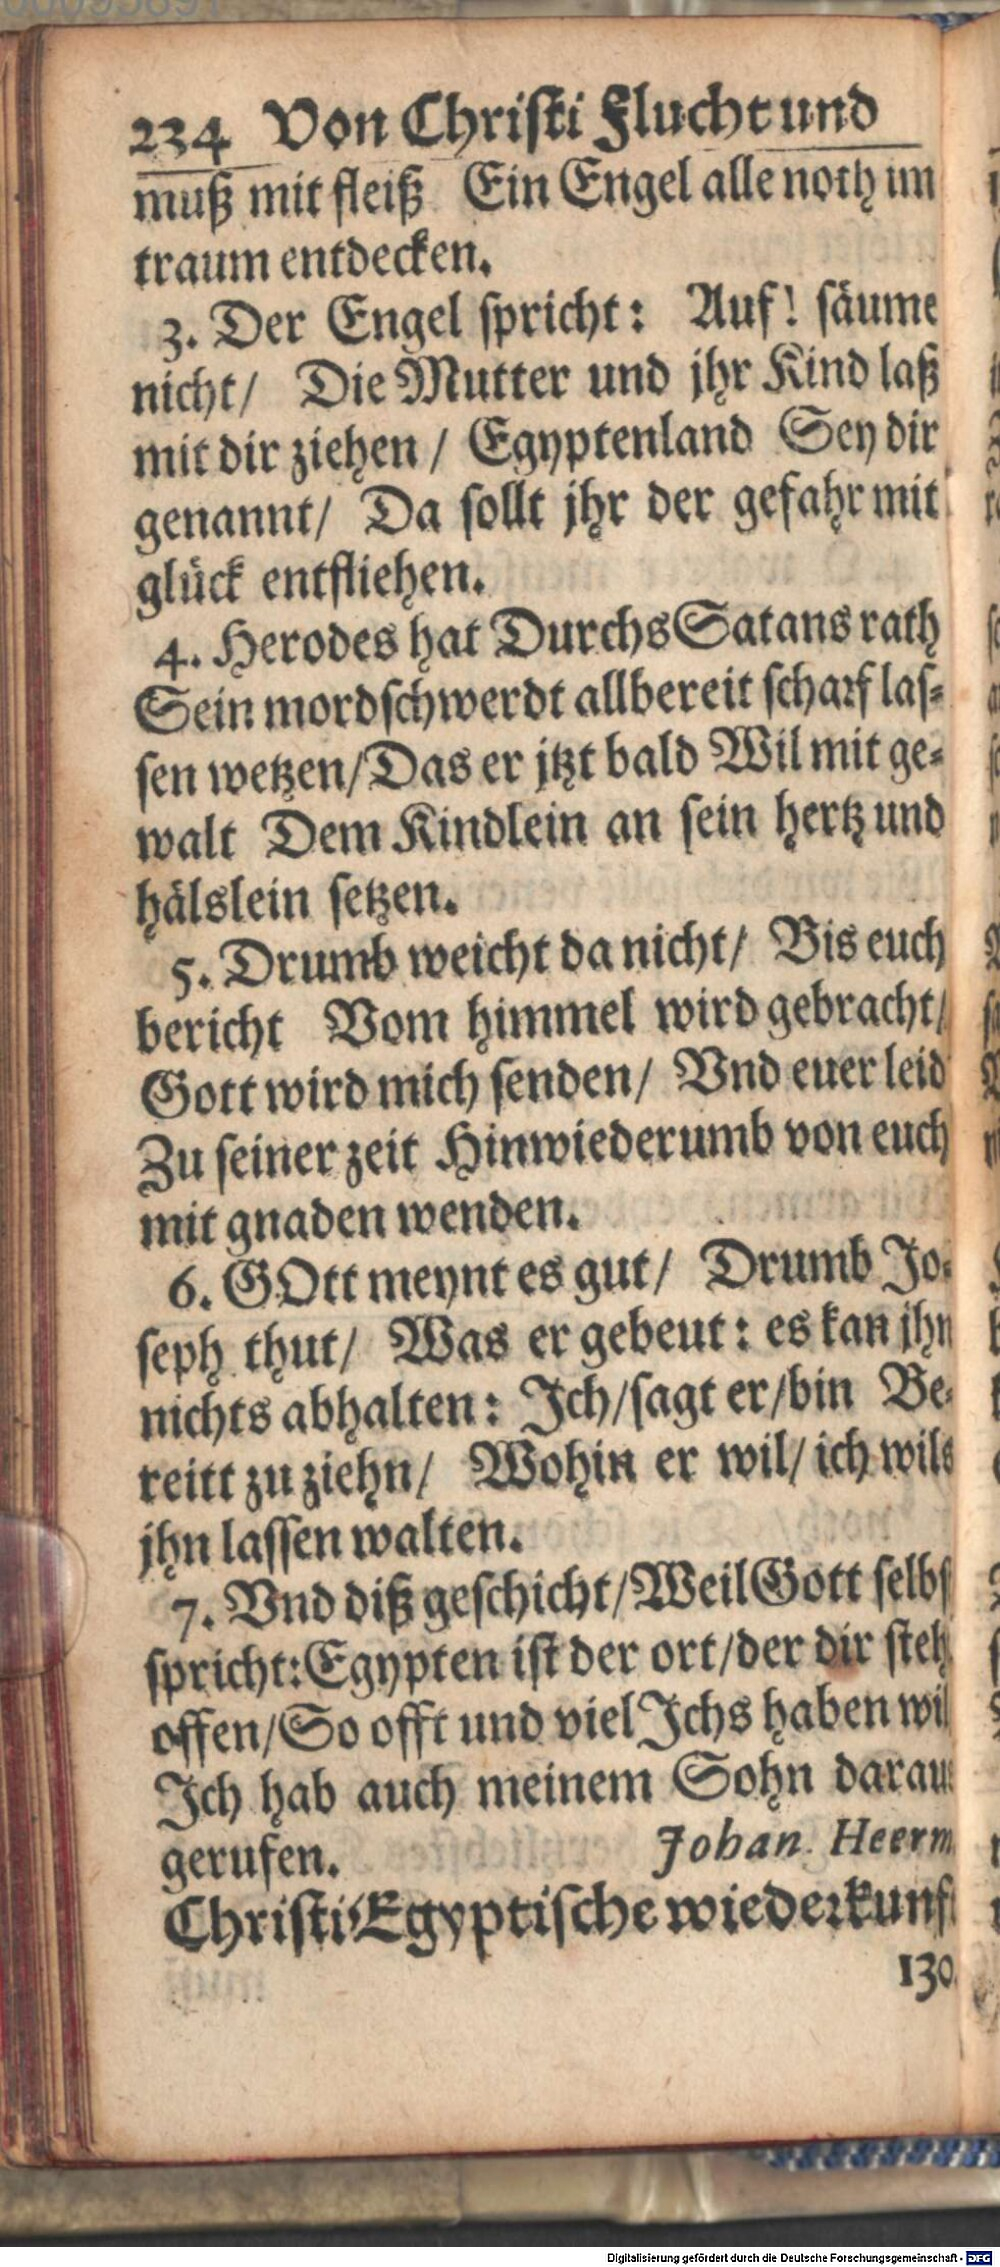 00095891
234 Von Christi Flucht und
muß mit fleiß Ein Engel alle noth im
traum entdecken.
3. Der Engel spricht: Auf! säume
nicht/ Die Mutter und jhr Kind laß
mit dir ziehen/ Egyptenland Sey dir
genannt/ Da sollt jhr der gefahr mit
glück entfliehen.
4. Herodes hat Durchs Satans rath
Sein mordschwerdt allbereit scharf las-
sen wetzen/ Das er jtzt bald Wil mit ge-
walt Dem Kindlein an sein hertz und
hälslein setzen.
5. Drumb weicht da nicht/ Bis euch
bericht Vom himmel wird gebracht/
Gott wird mich senden/ Vnd euer leid
Zu seiner zeit Hinwiederumb von euch
mit gnaden wenden.
6. GOtt meynt es gut/ Drumb Jo-
seph thut/ Was er gebeut: es kan jhn
nichts abhalten: Ich/ sagt er/ bin Be-
reitt zu ziehn/ Wohin er wil/ ich wils
jhn lassen walten.
7. Vnd diß geschicht/ Weil Gott selbs
spricht: Egypten ist der ort/ der dir steh
offen/ So offt und viel Ichs haben wil
Ich hab auch meinem Sohn daraus
gerufen. Johan. Heerm.
Christi Egyptische wiederkunft
130.
Digitalisierung gefördert durch die Deutsche Forschungsgemeinschaft - DFG